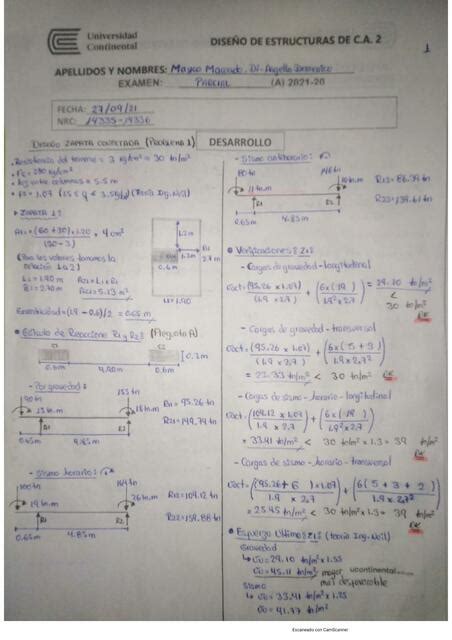 Universidad
Continental
DISEÑO DE ESTRUCTURAS DE C.A. 2
1
APELLIDOS Y NOMBRES: Mayco Macando, Di-Angello Domenico
EXAMEN: PARCIAL (A) 2021-20
FECHA: 27/09/21
NRC: 14335-14336
DISEÑO ZAPATA CONECTADA (Problema 1)
DESARROLLO
• Resistencia del terreno = 3 kg/cm² = 30 tn/m²
• f'c = 280 kg/cm²
• Long entre columnas = 5.5 m
▸ ZAPATA 1:
AZ1 = (60+30) x 1.20
(30-3)
L1 = 1.90 m
B1 = 2.70 m
AZ1 = L1 x B1
AZ1 = 5.13 m²
Excentricidad = (1.9 - 0.6)/2 = 0.65 m
1.3 m
2.7 m
0.6m
1.90
• Cálculo de Reacciones R1 y R2: (Pregunta A)
0.6m
4.90m
0.6m
- Por gravedad:
90tn
153 tn
18tn.m
R1
R2
0.65m
4.85m
R1 = 95.26 tn
R2 = 149.74 tn
- Sismo horario:
100tn
164 tn
19tn.m
26tn.m
R1
R2
0.65m
4.85m
R1s = 104.12 tn
R2s = 159.88 tn
- Sismo antihorario:
80tn
146tn
11tn.m
10tn.m
R1
R2
0.65m
4.85m
R1s = 86.39 tn
R2s = 139.61 tn
• Verificaciones: Z1:
- Cargas de gravedad - longitudinal
σact = (95.26 x 1.07) + (6 x (19)) = 29.10 tn/m²
(1.9 x 2.7) 1.9² x 2.7
<
30 tn/m²
OK
- Cargas de gravedad - transversal
σact = (95.26 x 1.07) + (6 x (5+3))
(1.9 x 2.7) 1.9 x 2.7²
= 23.33 tn/m² < 30 tn/m² OK
- Cargas de sismo - horario - longitudinal
σact = (104.12 x 1.07) + (6 x (19))
(1.9 x 2.7) 1.9² x 2.7
= 33.41 tn/m² < 30 tn/m² x 1.3 = 39 tn/m²
OK
- Cargas de sismo - horario - transversal
σact = (95.26 + 6) x 1.07) + (6 (5+3+2)
1.9 x 2.7 1.9 x 2.7²
= 25.45 tn/m² < 30 tn/m² x 1.3 = 39 tn/m²
OK
• Esfuerzo Último: Z1: (teoria Ing. Neil)
Gravedad
↳ σu = 29.10 tn/m² x 1.55
σu = 45.11 tn/m² mayor
ucontinental
mas desfavorable
Sismo
↳ σu = 33.41 tn/m² x 1.25
σu = 41.77 tn/m²
Escaneado con CamScanner